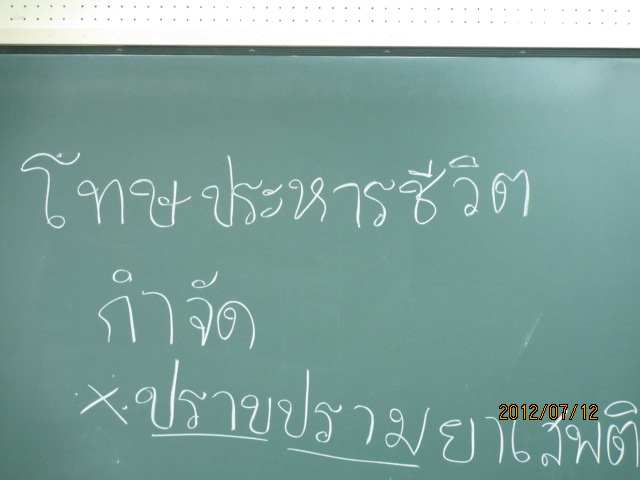 โทษประหารชีวิต
กำจัด
× ปราบปราม ยาเสพติ
2012/07/12